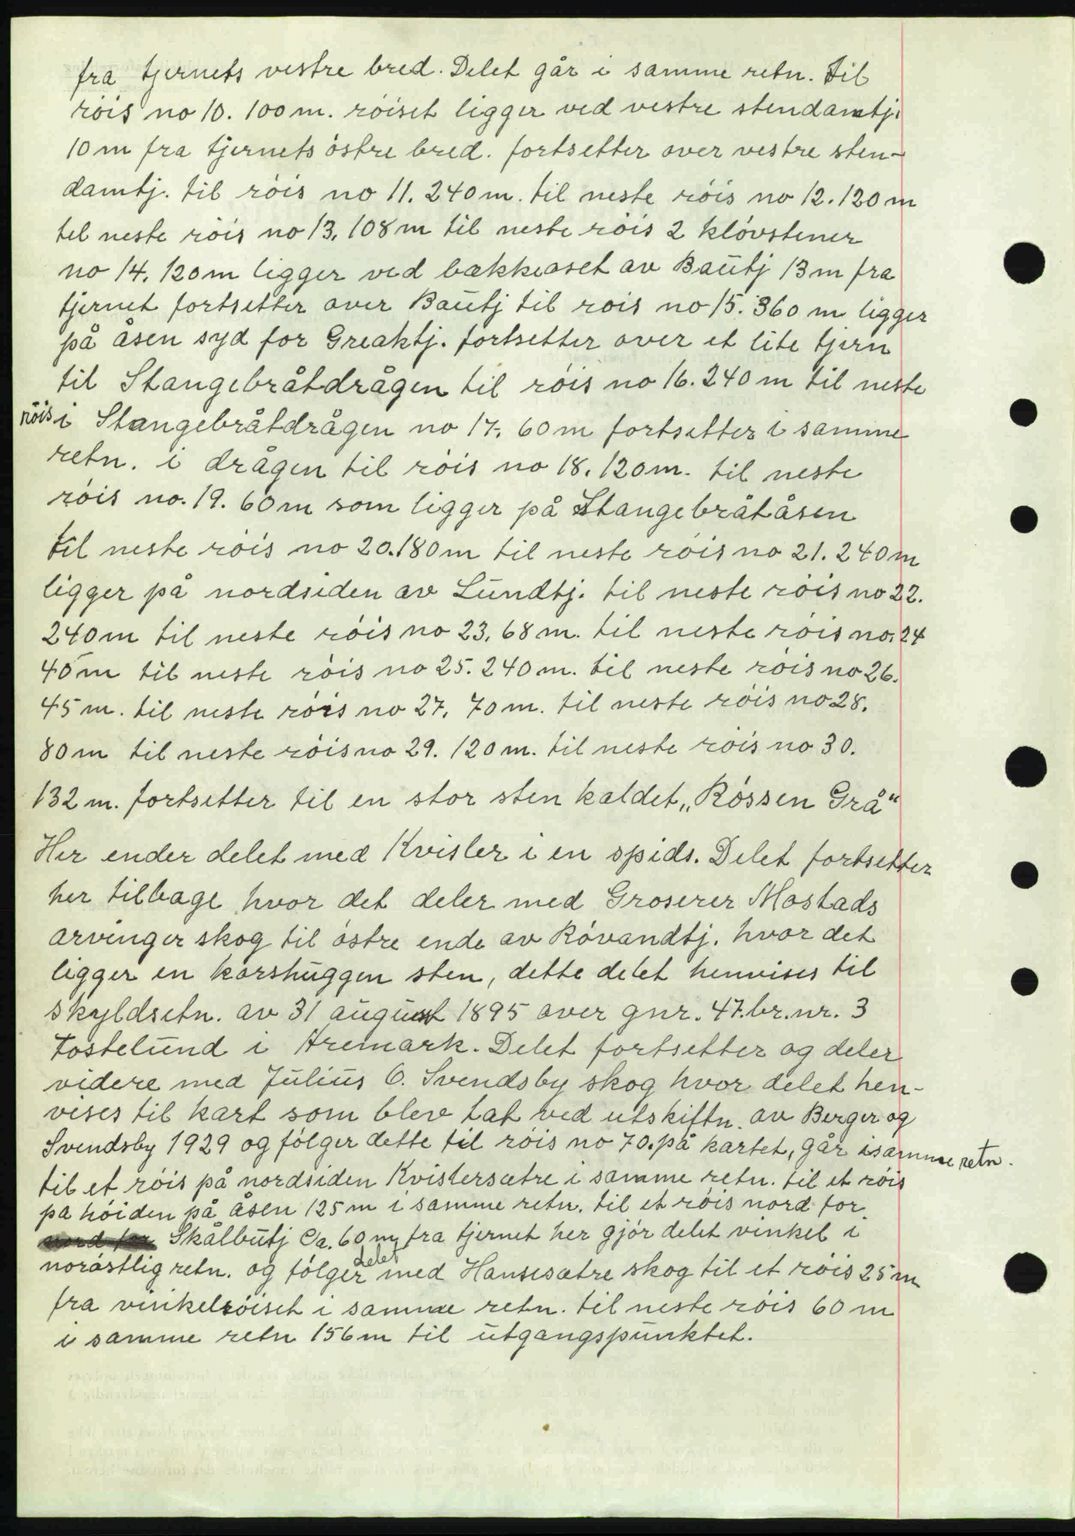 fra tjernets vestre bred. Delet går i samme retn. til
röis no 10. 100 m. röiset ligger ved vestre stendamtj.
10 m fra tjernets östre bred. fortsetter over vestre sten-
damtj. til röis no 11. 240 m. til neste röis no 12. 120 m
til neste röis no 13. 108 m til neste röis 2 klövstener
no 14. 120 m ligger ved bækkeoset av Bautj 13 m fra
tjernet fortsetter over Bautj til rois no 15. 360 m ligger
på åsen syd for Greaktj. fortsetter over et lite tjern
til Stangebråtdrågen til röis no 16. 240 m til neste
röis i Stangebråtdrågen no 17. 60 m fortsetter i samme
retn. i drågen til röis no 18. 120 m. til neste
röis no. 19. 60 m som ligger på Stangebråtåsen
til neste röis no 20. 180 m til neste röis no 21. 240 m
ligger på nordsiden av Lundtj. til neste röis no 22.
240 m til neste röis no 23. 68 m. til neste röis no. 24
40 m til neste röis no 25. 240 m. til neste röis no 26.
45 m. til neste röis no 27. 70 m. til neste röis no 28.
80 m til neste röis no 29. 120 m. til neste röis no 30.
132 m. fortsetter til en stor sten kaldet „Róssen Grå“
Her ender delet med Kvisler i en spids. Delet fortsetter
her tilbage hvor det deler med Groserer Mostads
arvinger skog til östre ende av Róvandtj. hvor det
ligger en korshuggen sten, dette delet henvises til
skyldsetn. av 31 august 1895 over gnr. 47. br. nr. 3
Tostelund i Aremark. Delet fortsetter og deler
videre med Julius O. Svendsby skog hvor delet hen-
vises til kart som blev tat ved utskiftn. av Berger og
Svendsby 1929 og fölger dette til röis no 70. på kartet, går i samme retn.
til et röis på nordsiden Kvistersætre i samme retn. til et röis
pa höiden på åsen 125 m i samme retn. til et röis nord for
Skålbutj Ca. 60 m fra tjernet her gjör delet vinkel i
noröstlig retn. og fölger delet med Hansesætre skog til et röis 25 m
fra vinkelröiset i samme retn. til neste röis 60 m
i samme retn 156 m til utgangspunktet.